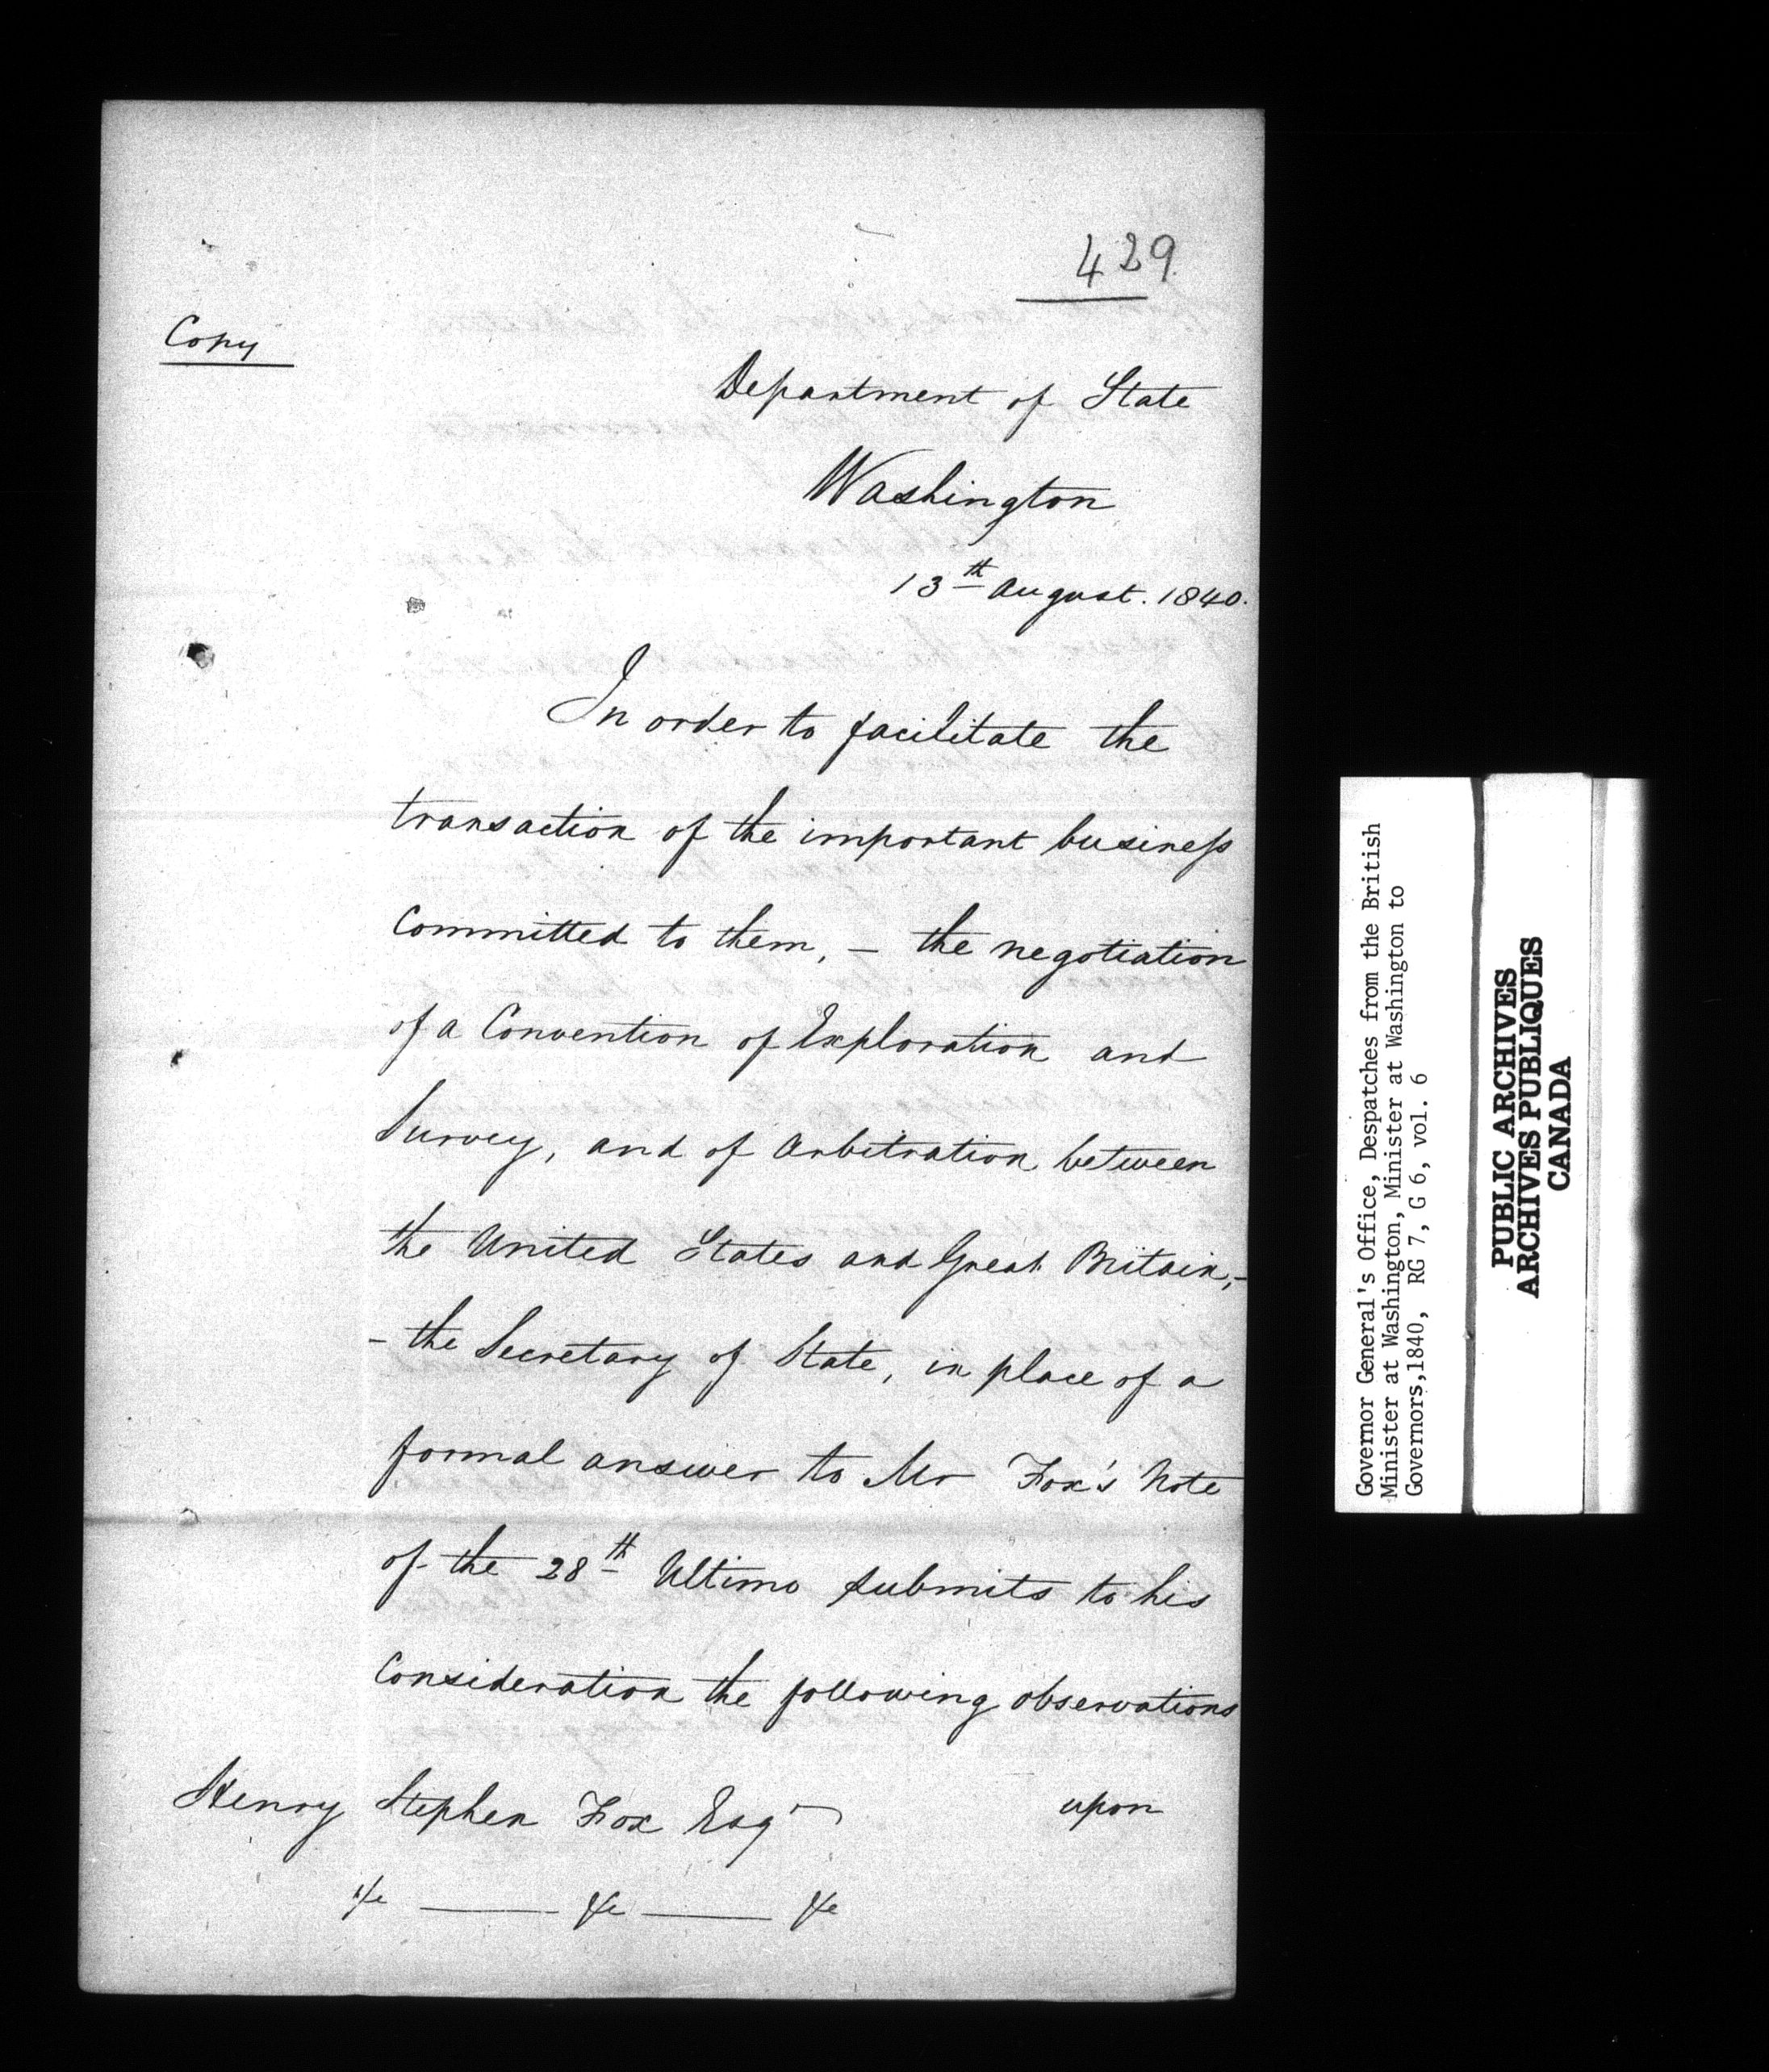 429
Copy
Department of State
Washington
13th August. 1840.
In order to facilitate the
transaction of the important business
Committed to them, – the negotiation
of a Convention of Exploration and
Survey, and of Arbitration between
the United States and Great Britain,–
– the Secretary of State, in place of a
formal answer to Mr Fox's Note
of the 28th Ultimo submits to his
Consideration the following observations
Henry Stephen Fox Esqr
upon
&c — &c — &c
Governor General's Office, Despatches from the British
Minister at Washington, Minister at Washington to
Governors,1840, RG 7, G 6, vol. 6
PUBLIC ARCHIVES
ARCHIVES PUBLIQUES
CANADA